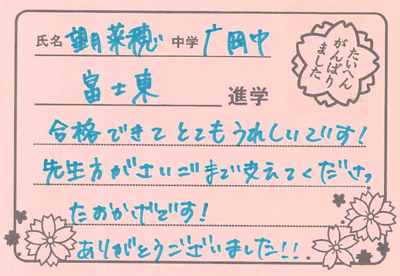 氏名 望月菜穂 中学 广岡中
たいへん
がんばり
ました
富士東 進学
合格できてとてもうれしいです!
先生方がさいごまで支えてくださっ
たおかげです!
ありがとうございました!!